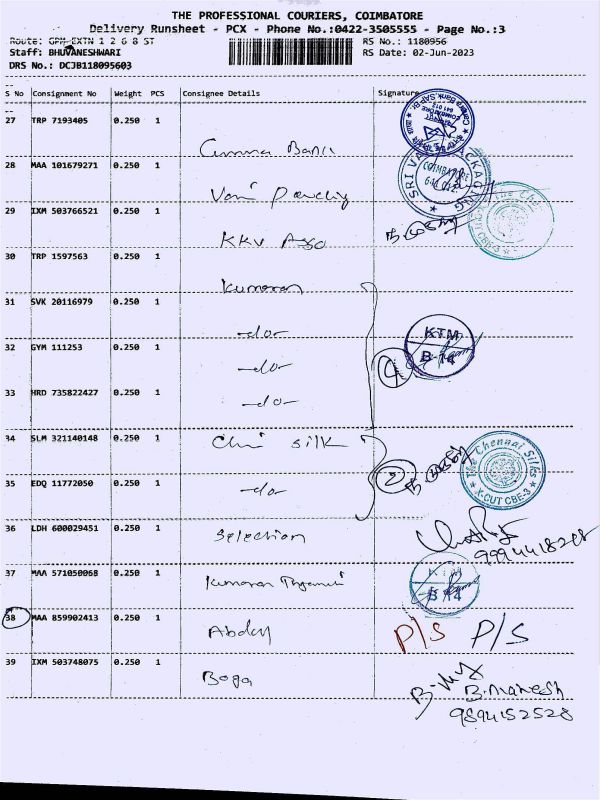 THE PROFESSIONAL COURIERS, COIMBATORE
Delivery Runsheet - PCX - Phone No.:0422-3505555 - Page No.:3
Route: GPM-EXTN 1 2 6 8 ST RS No.: 1180956
Staff: BHUVANESHWARI RS Date: 02-Jun-2023
DRS No.: DCJB118095603
S No Consignment No Weight PCS Consignee Details Signature
27 TRP 7193405 0.250 1
Canara Bank
28 MAA 101679271 0.250 1
Vani
COIMBATORE
29 IXM 503766521 0.250 1
KKV
30 TRP 1597563 0.250 1
Kumaran
31 SVK 20116979 0.250 1
-do-
KTM
32 GYM 111253 0.250 1
B-14
-do-
4
33 HRD 735822427 0.250 1
-do-
34 SLM 321140148 0.250 1
Chi silk
The Chennai Silks
X-CUT CBE-3
35 EDQ 11772050 0.250 1
-do-
2
36 LDH 600029451 0.250 1
Selection
9994418268
37 MAA 571050068 0.250 1
Kumaran
KTM
B 14
38 MAA 859902413 0.250 1
Abdul
P/S P/S
39 IXM 503748075 0.250 1
Boga
B. Mahesh
9894152528